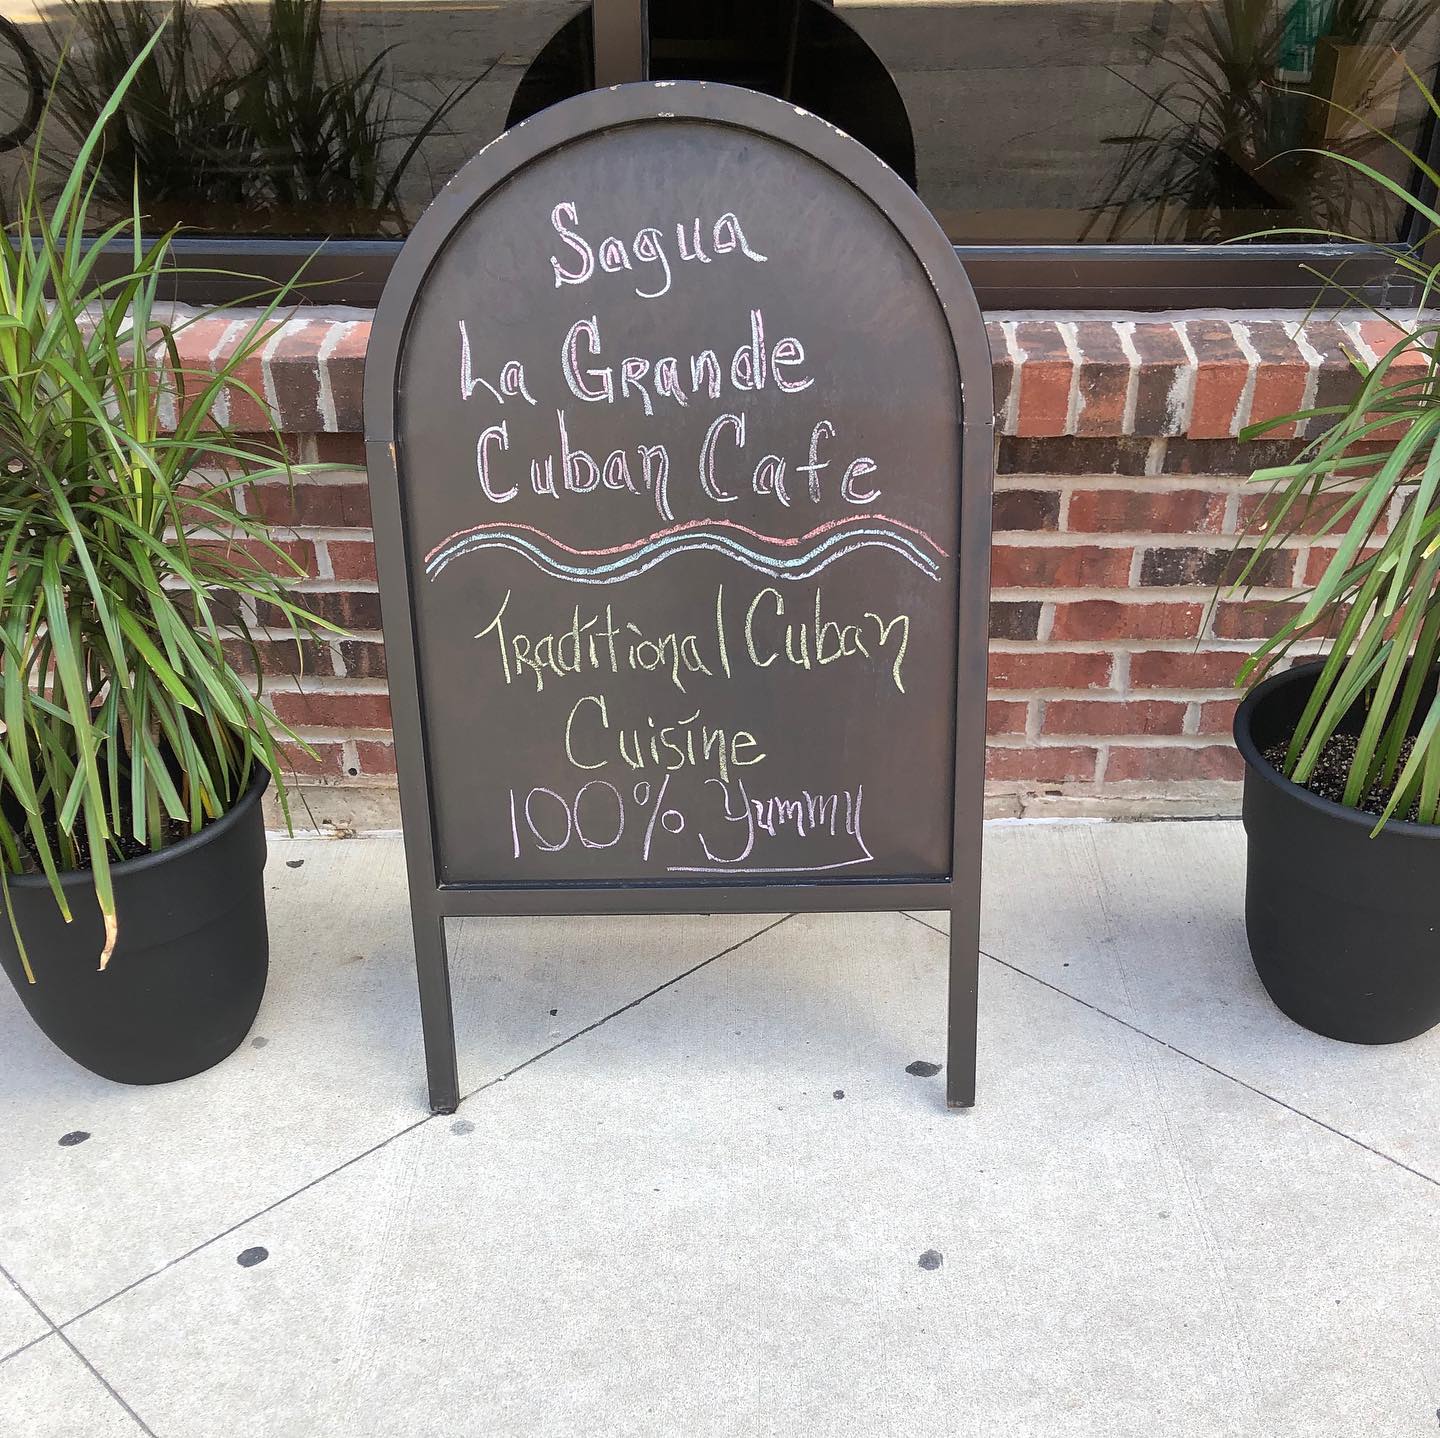 Sagua
La Grande
Cuban Cafe
Traditional Cuban
Cuisine
100% Yummy